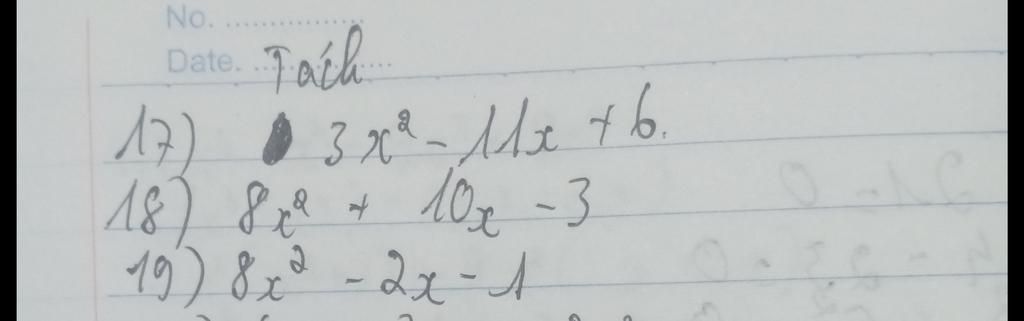 No. ................
Date. ................
Tách
17) 3x² - 11x + 6.
18) 8x² + 10x - 3
19) 8x² - 2x - 1